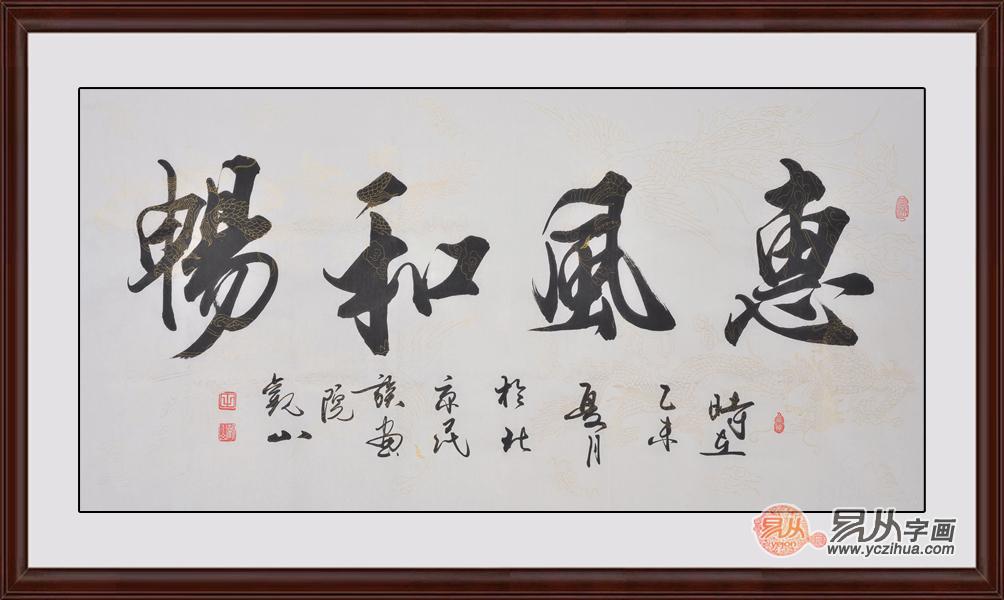 惠風和暢
時在
乙未
夏月
於北
京民
族画
院
觀山
易从
易从字画
www.yczihua.com